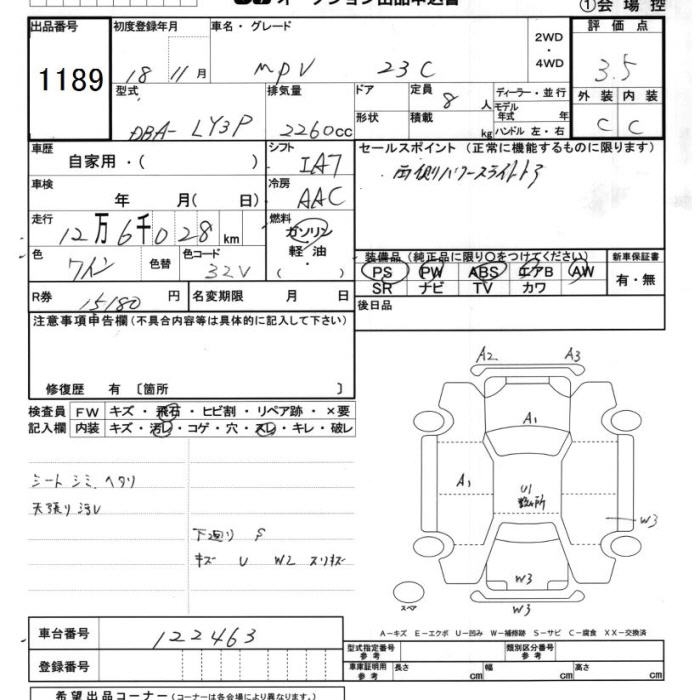 オークション出品申込書 ①会場控
出品番号 1189
初度登録年月 18 11月
車名・グレード MPV 23C
2WD・4WD
評価点 3.5
外装 内装
C C
型式 DBA-LY3P
排気量 2260cc
ドア 形状
定員 8人
積載 kg
ディーラー・並行
モデル年式 年
ハンドル 左・右
車歴 自家用・( )
シフト IA7
セールスポイント(正常に機能するものに限ります)
両側パワースライドドア
車検 年 月( 日)
冷房 AAC
走行 12万6千028km
燃料 ガソリン 軽油 ( )
色 ワイン 色替 色コード 32V
装備品(純正品に限り○をつけてください)
PS PW ABS エアB AW
SR ナビ TV カワ
新車保証書 有・無
R券 15180円 名変期限 月 日
後日品
注意事項申告欄(不具合内容等は具体的に記入して下さい)
修復歴 有 〔箇所 〕
検査員記入欄
FW キズ・飛石・ヒビ割・リペア跡・×要
内装 キズ・汚レ・コゲ・穴・スレ・キレ・破レ
シートシミ、ヘタリ
天張り汚レ
下廻り S
キズ U W2 スリキズ
A2 A3
A1
A1
U1
W3
W3
W3
スペア
A－キズ E－エクボ U－凹み W－補修跡 S－サビ C－腐食 XX－交換済
車台番号 122463
登録番号
型式指定番号 参考
類別区分番号 参考
車庫証明用 参考 長さ cm 幅 cm 高さ cm
希望出品コーナー(コーナーは各会場により異なります。)